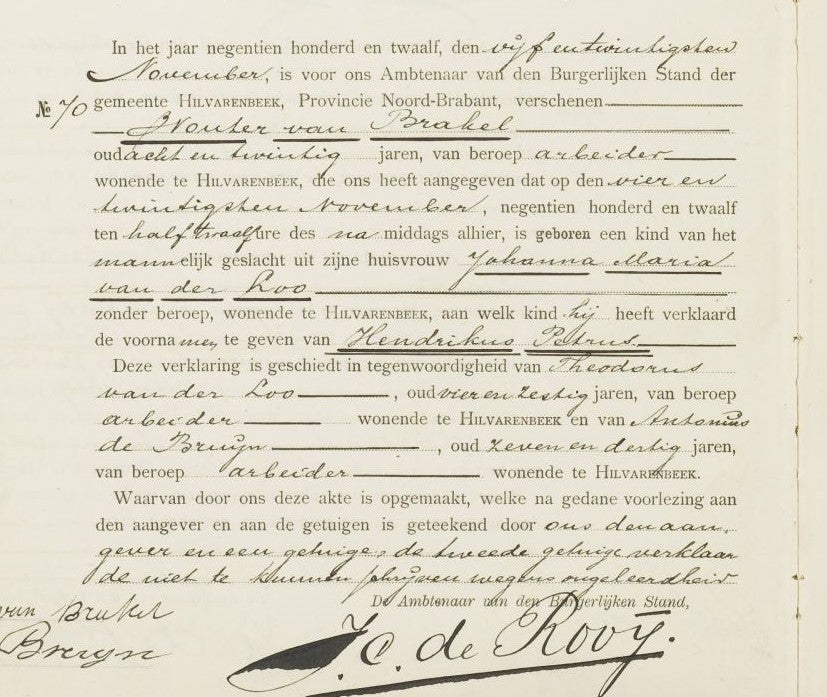 In het jaar negentien honderd en twaalf, den vijf en twintigsten
November, is voor ons Ambtenaar van den Burgerlijken Stand der
№ 70 gemeente HILVARENBEEK, Provincie Noord-Brabant, verschenen
Wouter van Brakel
oud acht en twintig jaren, van beroep arbeider
wonende te HILVARENBEEK, die ons heeft aangegeven dat op den vier en
twintigsten November, negentien honderd en twaalf
ten half twaalf ure des na middags alhier, is geboren een kind van het
mannelijk geslacht uit zijne huisvrouw Johanna Maria
van der Loo
zonder beroep, wonende te HILVARENBEEK, aan welk kind hij heeft verklaard
de voornamen te geven van Hendrikus Petrus
Deze verklaring is geschiedt in tegenwoordigheid van Theodorus
van der Loo, oud vier en zestig jaren, van beroep
arbeider wonende te HILVARENBEEK en van Antonius
de Bruijn, oud zeven en dertig jaren,
van beroep arbeider wonende te HILVARENBEEK.
Waarvan door ons deze akte is opgemaakt, welke na gedane voorlezing aan
den aangever en aan de getuigen is geteekend door ons den aan-
gever en een getuige, de tweede getuige verklaar
de niet te kunnen schrijven wegens ongeleerdheid
De Ambtenaar van den Burgerlijken Stand,
van Brakel
Bruijn
J. C. de Rooy.